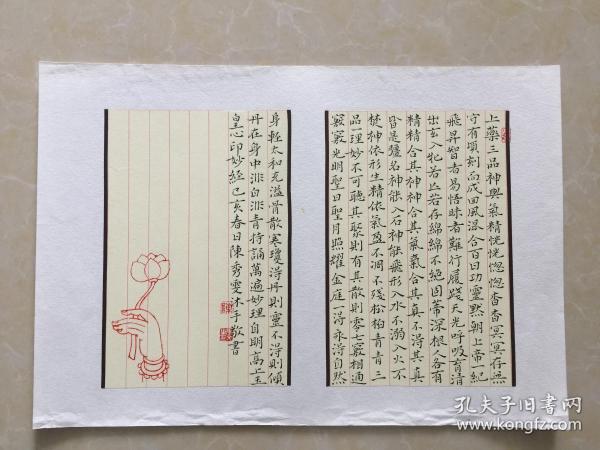 上藥三品神與氣精恍恍惚惚杳杳冥冥存無
守有頃刻而成回風混合百日功靈黙朝上帝一紀
飛昇智者易悟昧者難行履踐天光呼吸育清
出玄入牝若亡若存綿綿不絕固蒂深根人各有
精精合其神神合其氣氣合其真不得其真
皆是強名神能入石神能飛形入水不溺入火不
焚神依形生精依氣盈不凋不殘松柏青青三
品一理妙不可聽其聚則有其散則零七竅相通
竅竅光明聖日聖月照耀金庭一得永得自然
身輕太和充溢骨散寒瓊得丹則靈不得則傾
丹在身中非白非青持誦萬遍妙理自明高上玉
皇心印妙經己亥春日陳秀雯沐手敬書
孔夫子旧书网
www.kongfz.com